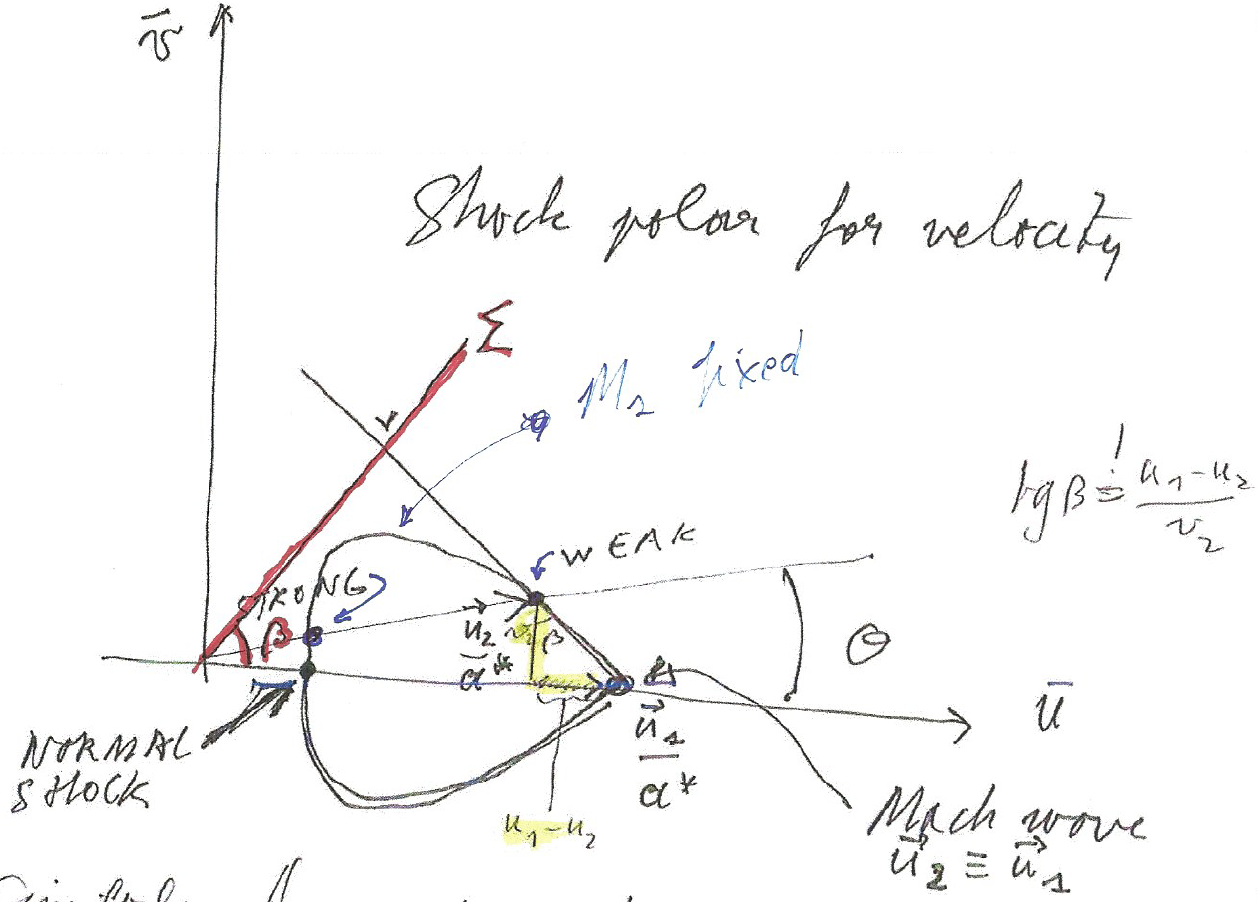 v̄
Shock polar for velocity
Σ
M₁ fixed
tgβ ≟ u₁-u₂ / v₂
WEAK
STRONG
β
u⃗₂ / a*
v₂
β
θ
ū
u⃗₁ / a*
NORMAL
SHOCK
u₁-u₂
Mach wave
u⃗₂ ≡ u⃗₁